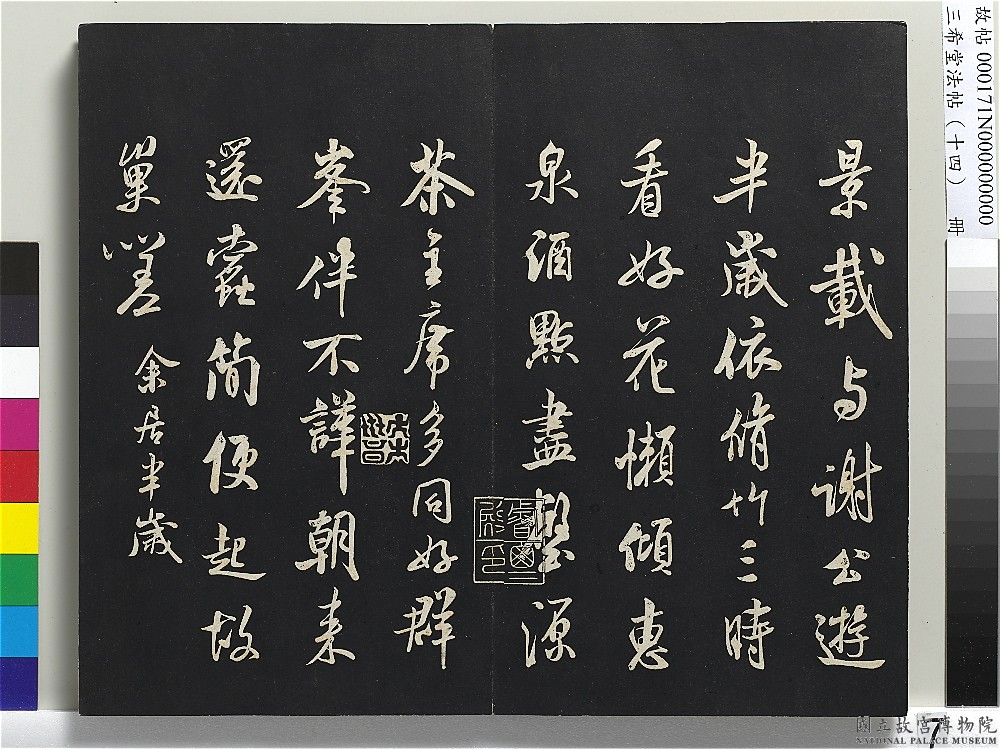 景載与謝公遊
半歲依脩竹三時
看好花懶傾惠
泉酒點盡壑源
茶主席多同好群
峯伴不譁朝来
還蠹簡便起故
巢嗟 余居半歲
故帖 000171N000000000
三希堂法帖（十四） 冊
國立故宮博物院
NATIONAL PALACE MUSEUM
7